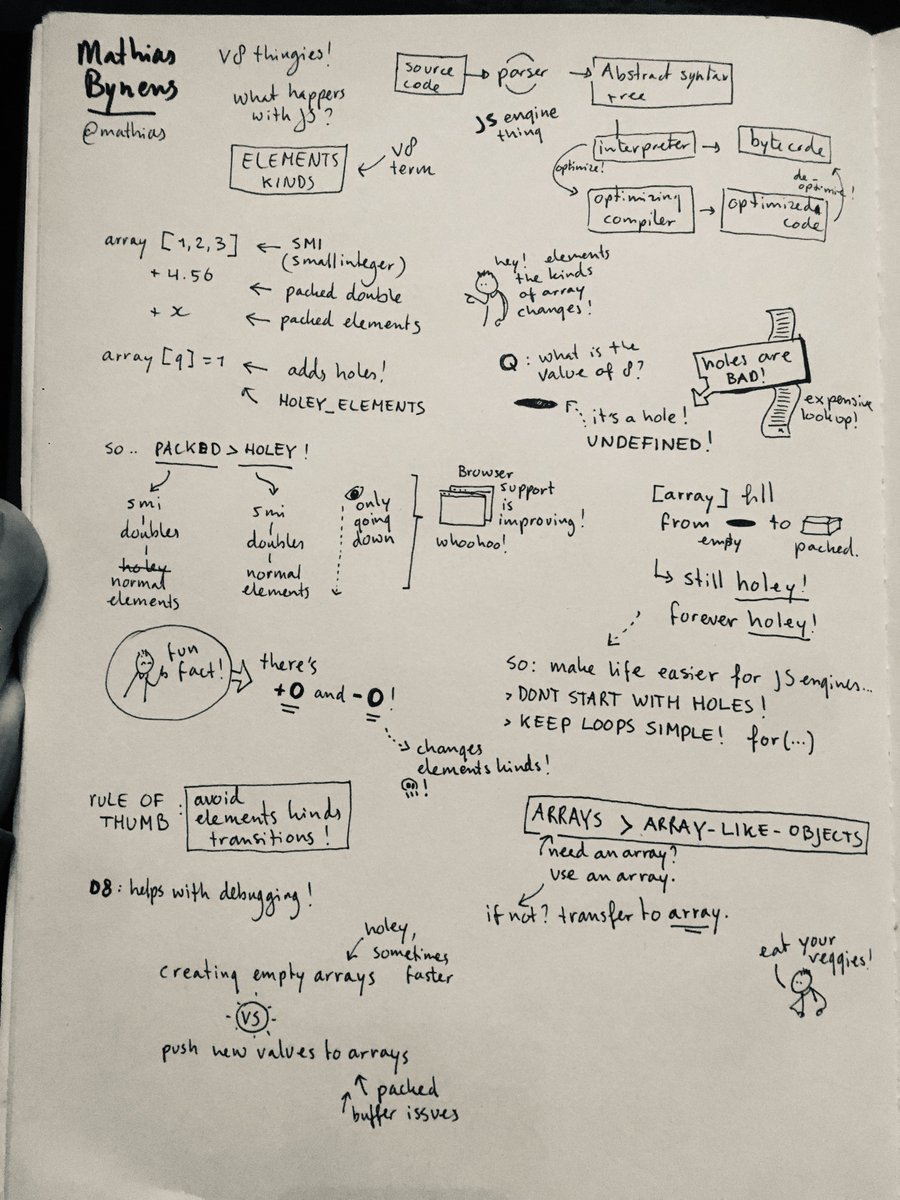 Mathias
Bynens
@mathias
V8 thingies!
what happens
with JS?
source
code
parser
Abstract syntax
tree
JS engine
thing
interpreter
bytecode
optimize!
de-
optimize!
optimizing
compiler
optimized
code
ELEMENTS
KINDS
V8
term
array [1,2,3]
SMI
(small integer)
+ 4.56
packed double
+ x
packed elements
hey! elements
the kinds
of array
changes!
array [9] = 1
adds holes!
HOLEY_ELEMENTS
Q: what is the
value of 8?
it's a hole!
UNDEFINED!
holes are
BAD!
expensive
lookup!
so.. PACKED > HOLEY!
smi
doubles
holey
normal
elements
smi
doubles
normal
elements
only
going
down
Browser
support
is
improving!
whoohoo!
[array] fill
from to
empty packed.
still holey!
forever holey!
fun
fact!
there's
+0 and -0!
changes
elements kinds!
!
so: make life easier for JS engines...
> DONT START WITH HOLES!
> KEEP LOOPS SIMPLE! for(...)
RULE OF
THUMB:
avoid
elements kinds
transitions!
ARRAYS > ARRAY-LIKE-OBJECTS
need an array?
use an array.
if not? transfer to array.
D8: helps with debugging!
holey,
sometimes
faster
creating empty arrays
VS
push new values to arrays
packed
buffer issues
eat your
veggies!